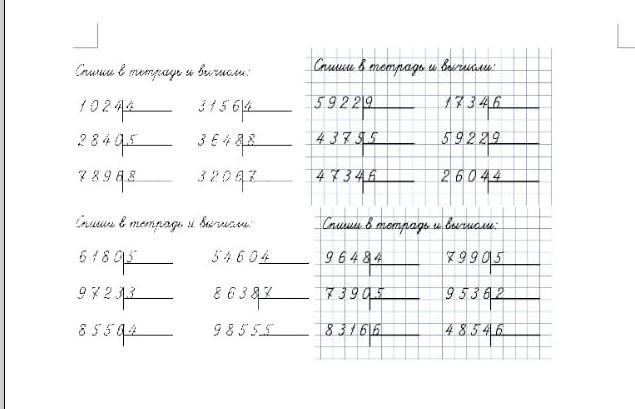 Спиши в тетрадь и вычисли:
1024 4 3156 4
2840 5 3648 8
7896 8 3206 7
Спиши в тетрадь и вычисли:
5922 9 1734 6
4375 5 5922 9
4734 6 2604 4
Спиши в тетрадь и вычисли:
6180 5 5460 4
9723 3 8638 7
8556 4 9855 5
Спиши в тетрадь и вычисли:
9648 4 7990 5
7390 5 9536 2
8316 6 4854 6